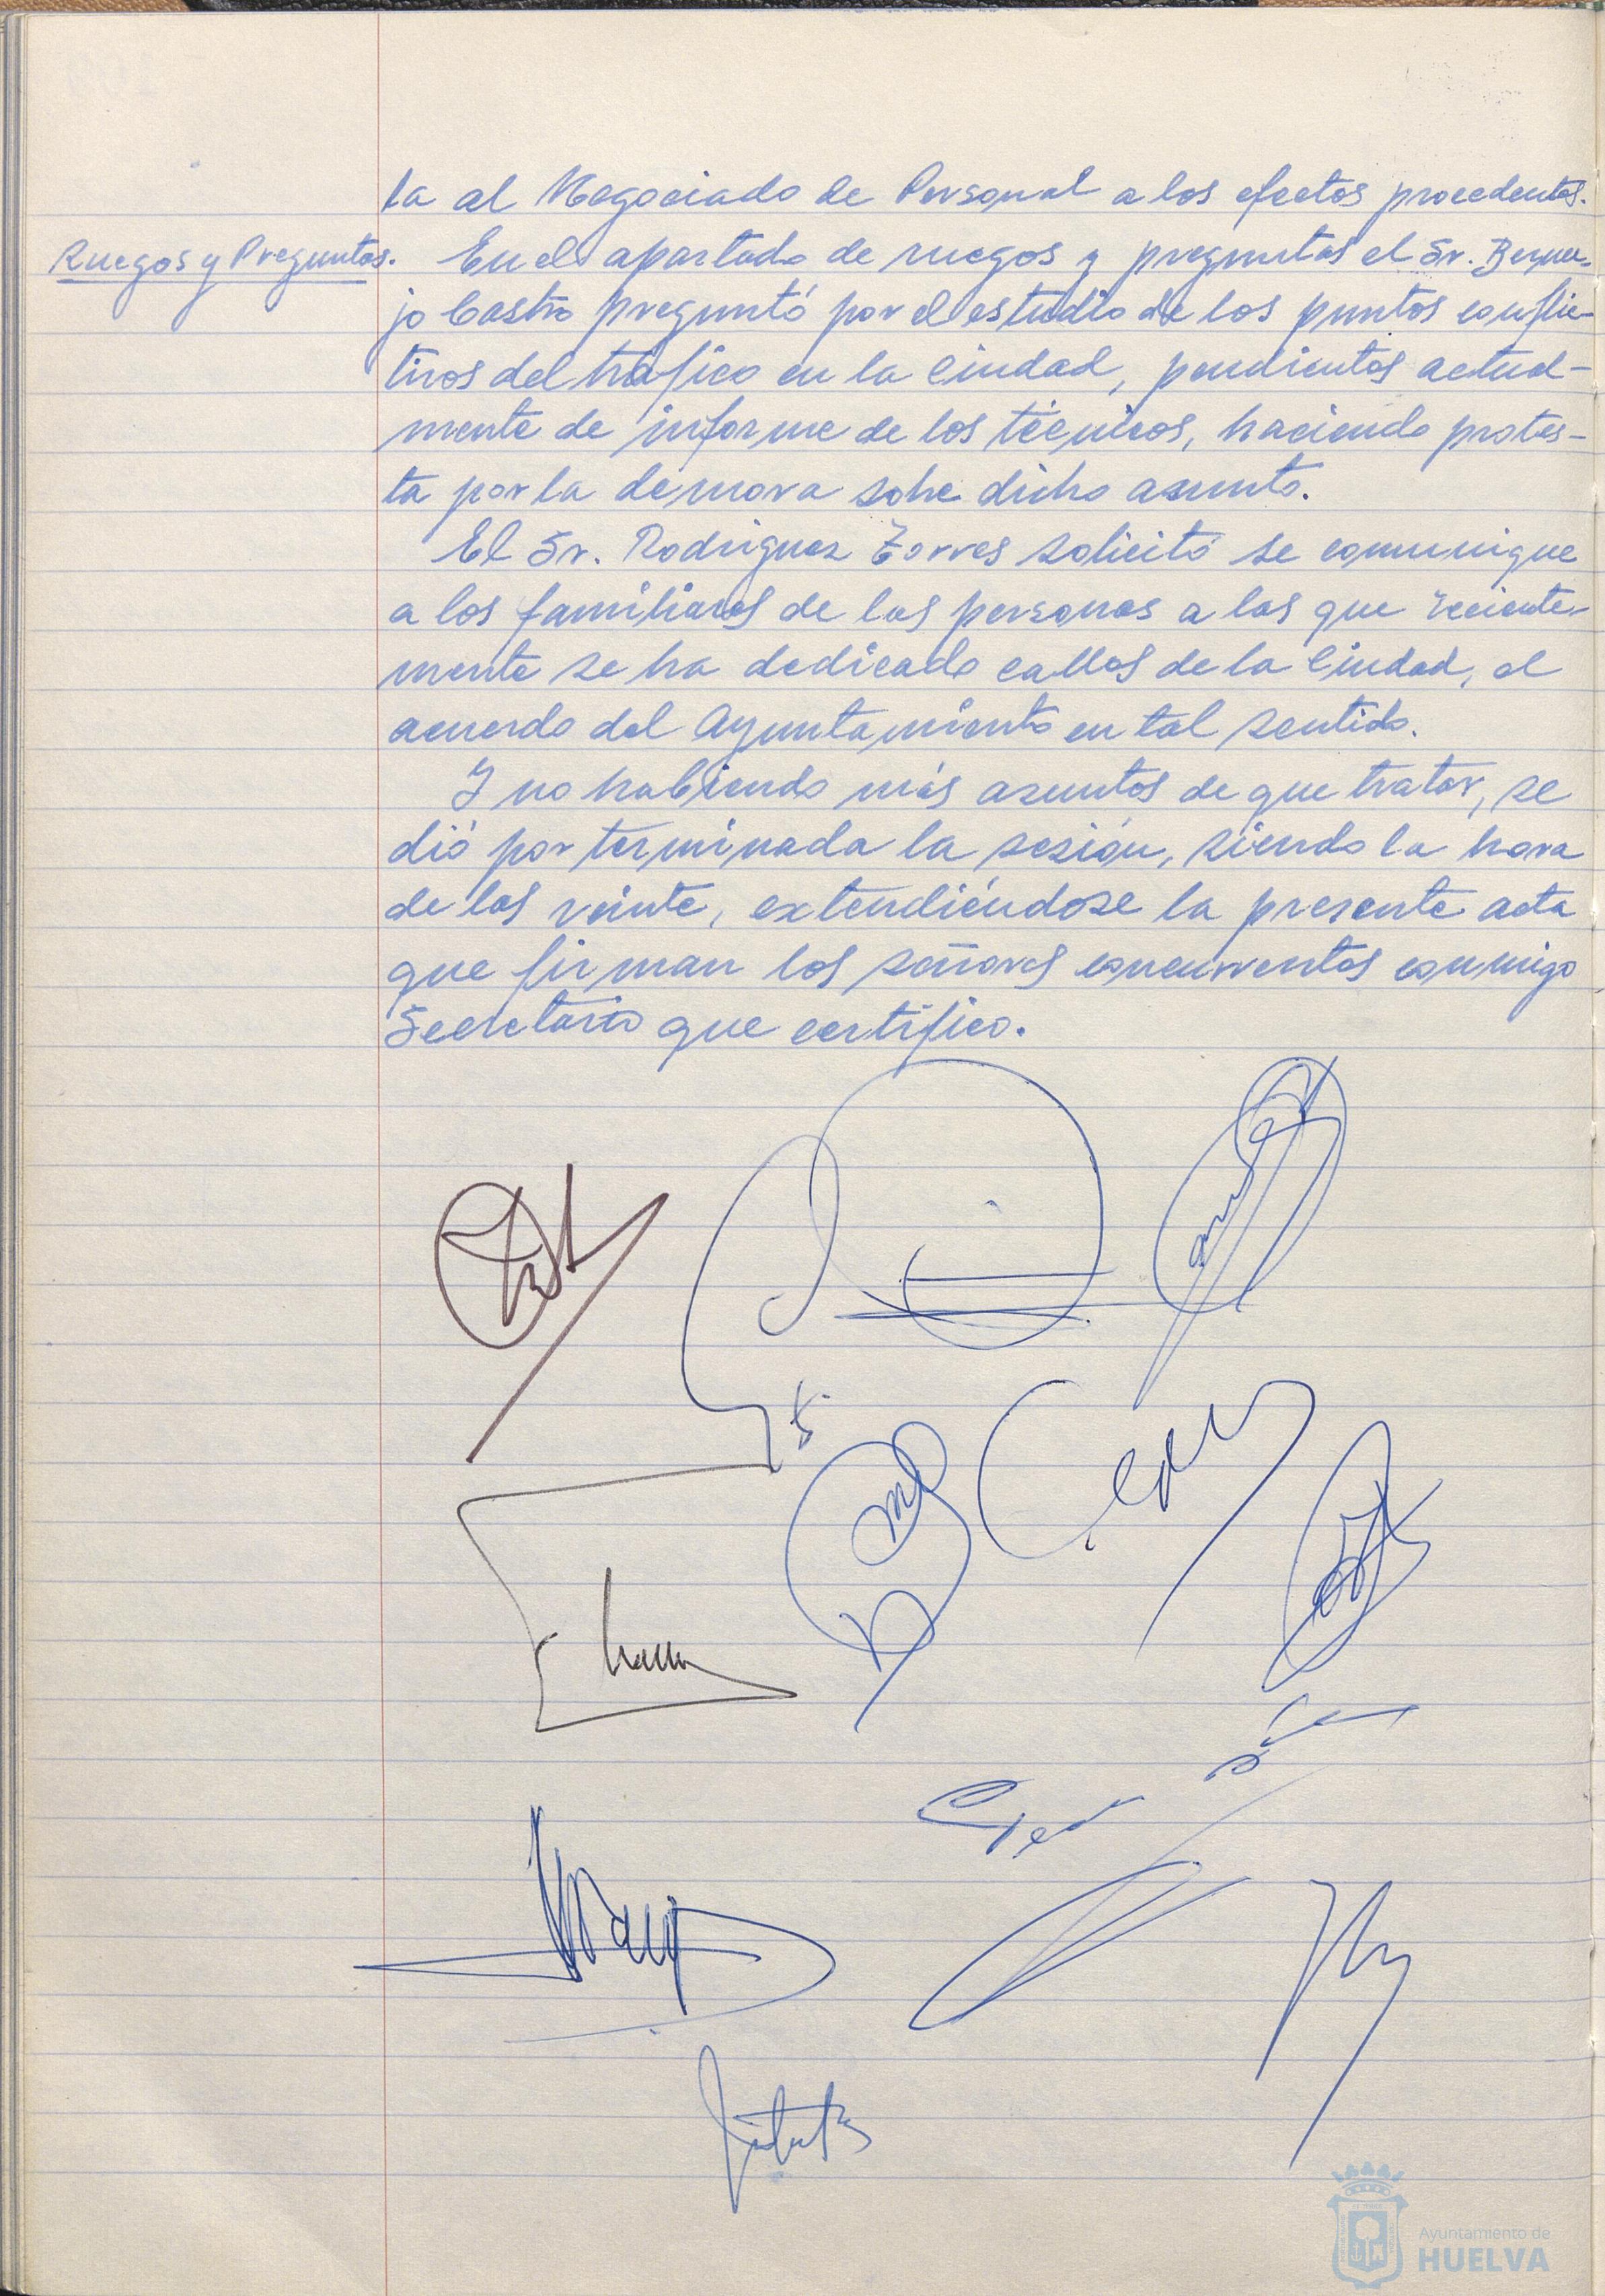 ta al Negociado de Personal a los efectos procedentes.
Ruegos y Preguntas. En el apartado de ruegos y preguntas el Sr. Bermejo
jo Castro preguntó por el estudio de los puntos conflic-
tivos del tráfico en la Ciudad, pendientes actual-
mente de informe de los técnicos, haciendo protes-
ta por la demora sobre dicho asunto.
El Sr. Rodríguez Torres solicitó se comunique
a los familiares de las personas a las que reciente-
mente se ha dedicado calles de la Ciudad, el
acuerdo del Ayuntamiento en tal sentido.
Y no habiendo más asuntos de que tratar, se
dió por terminada la sesión, siendo la hora
de las veinte, extendiéndose la presente acta
que firman los señores concurrentes conmigo
Secretario que certifico.
Ayuntamiento de
HUELVA